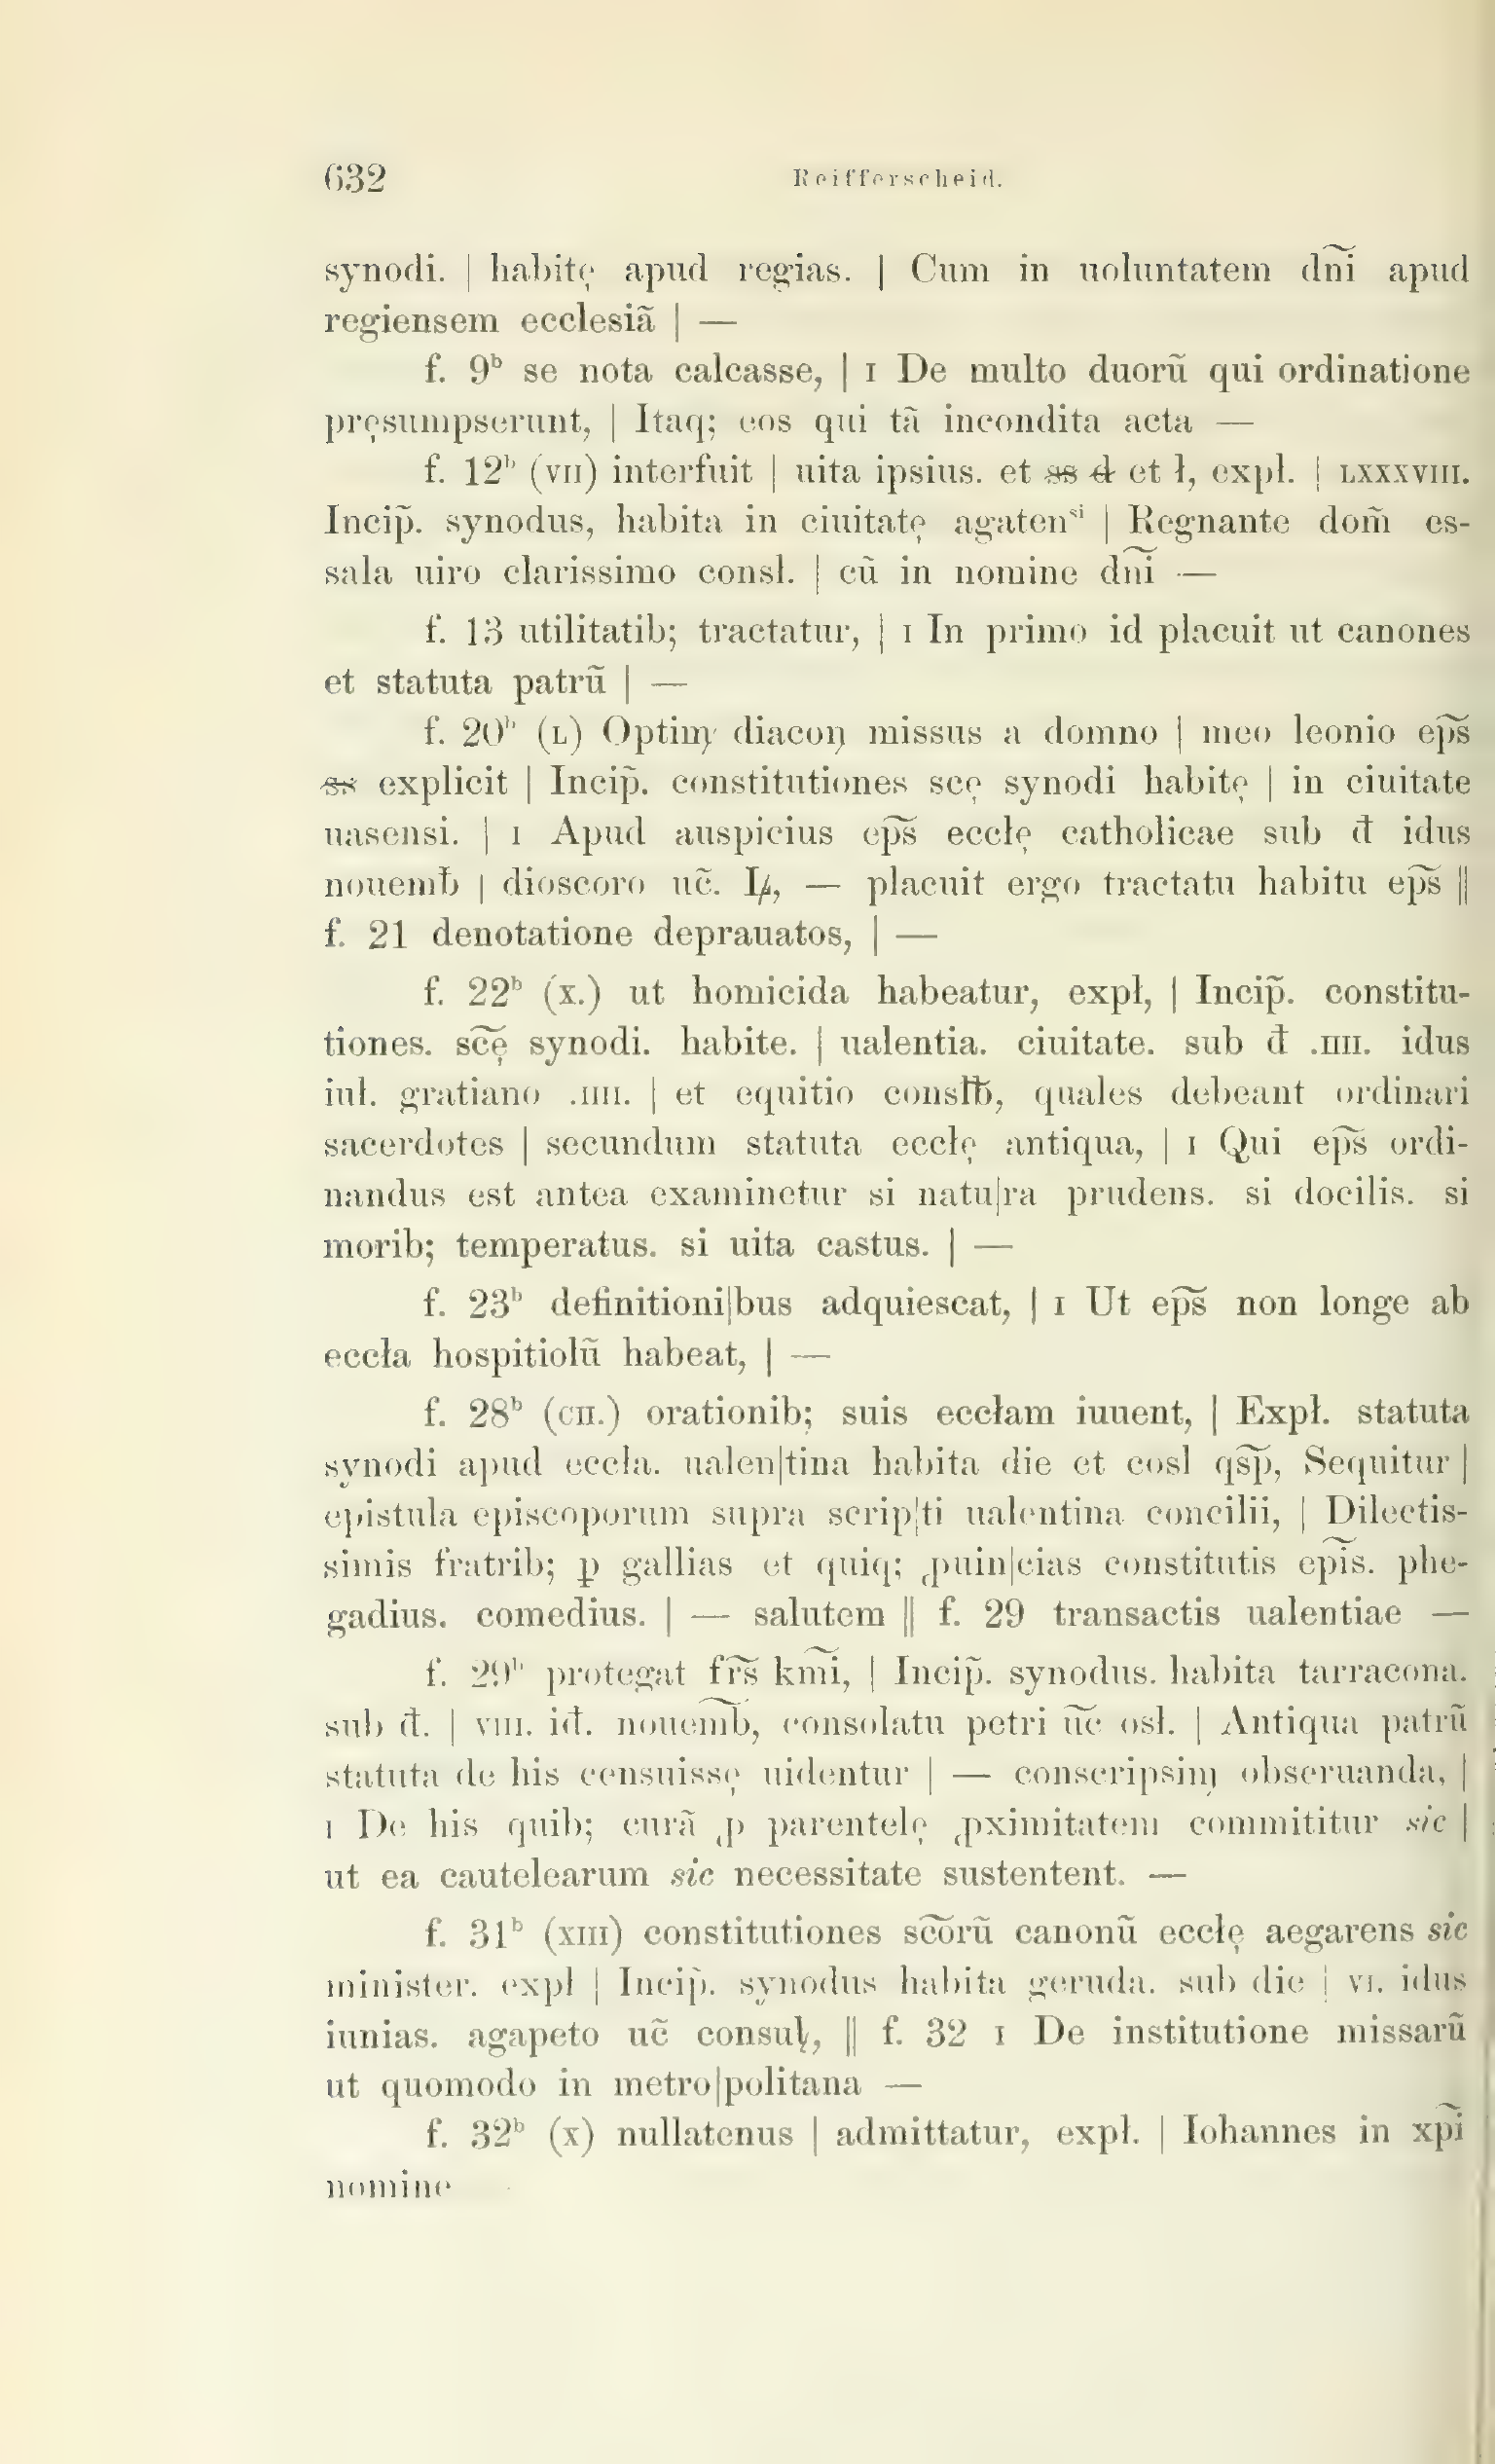 632 Reifferscheid.
synodi. | habitę apud regias. | Cum in uoluntatem dñi apud
regiensem ecclesiã | —
f. 9ᵇ se nota calcasse, | I De multo duorũ qui ordinatione
pręsumpserunt, | Itaq; eos qui tã incondita acta —
f. 12ᵇ (VII) interfuit | uita ipsius. et s̶s̶ d̶ et ł, expł. | LXXXVIII.
Incip̃. synodus, habita in ciuitatę agatenˢⁱ | Regnante dom̃ es-
sala uiro clarissimo consł. | cũ in nomine dñi —
f. 13 utilitatib; tractatur, | I In primo id placuit ut canones
et statuta patrũ | —
f. 20ᵇ (L) Optim̨ diacon̨ missus a domno | meo leonio ep̃s
s̶s̶ explicit | Incip̃. constitutiones scę synodi habitę | in ciuitate
uasensi. | I Apud auspicius ep̃s eccłę catholicae sub đ idus
nouemƀ | dioscoro uc̃. I̷, — placuit ergo tractatu habitu ep̃s ||
f. 21 denotatione deprauatos, | —
f. 22ᵇ (X.) ut homicida habeatur, expł, | Incip̃. constitu-
tiones. sc̃ę synodi. habite. | ualentia. ciuitate. sub đ .IIII. idus
iuł. gratiano .IIII. | et equitio consłƀ, quales debeant ordinari
sacerdotes | secundum statuta eccłę antiqua, | I Qui ep̃s ordi-
nandus est antea examinetur si natu|ra prudens. si docilis. si
morib; temperatus. si uita castus. | —
f. 23ᵇ definitioni|bus adquiescat, | I Ut ep̃s non longe ab
eccła hospitiolũ habeat, | —
f. 28ᵇ (CII.) orationib; suis eccłam iuuent, | Expł. statuta
synodi apud eccła. ualen|tina habita die et cosl qs̃p, Sequitur |
epistula episcoporum supra scrip|ti ualentina concilii, | Dilectis-
simis fratrib; ꝑ gallias et quiq; ꝓuin|cias constitutis epĩs. phe-
gadius. comedius. | — salutem || f. 29 transactis ualentiae —
f. 29ᵇ protegat fr̃s km̃i, | Incip̃. synodus. habita tarracona.
sub đ. | VIII. iđ. nouem̃b, consolatu petri ũc osł. | Antiqua patrũ
statuta de his censuissę uidentur | — conscripsim̨ obseruanda, |
I De his quib; curã ꝓ parentelę ꝓximitatem commititur sic |
ut ea cautelearum sic necessitate sustentent. —
f. 31ᵇ (XIII) constitutiones sc̃orũ canonũ eccłę aegarens sic
minister. expl | Incip̃. synodus habita geruda. sub die | VI. idus
iunias. agapeto uc̃ consuł, || f. 32 I De institutione missarũ
ut quomodo in metro|politana —
f. 32ᵇ (X) nullatenus | admittatur, expł. | Iohannes in xp̃i
nomine